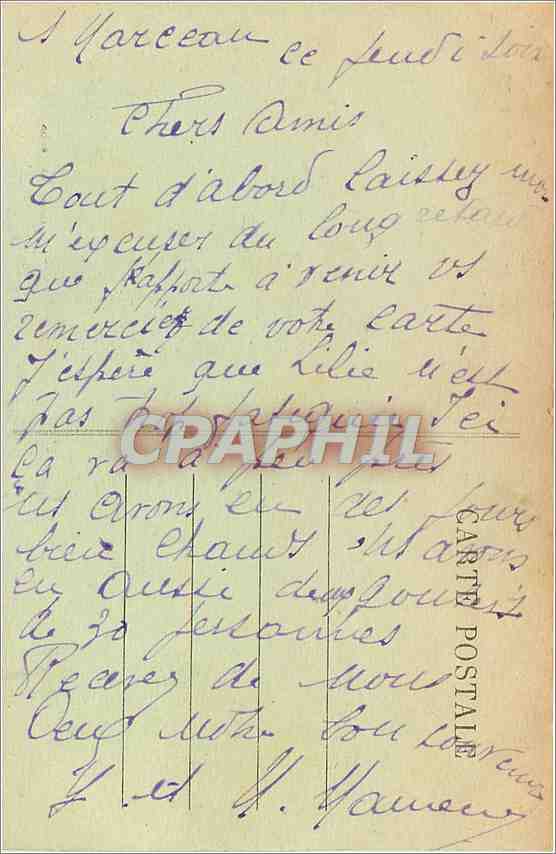 St Marceau ce jeudi soir
Chers Amis
Tout d'abord Laissez moi
m'excuser du long retard
que j'apporte à venir vs
remercier de votre carte
J'espère que Lilie n'est
pas trop fatiguée. Ici
CPAPHIL
ça va à peu près
ns avons eu des jours
bien chauds. Ns avons
eu aussi deux
de 30 personnes
Recevez de nous
Deux notre bon souvenir
et
CARTE POSTALE